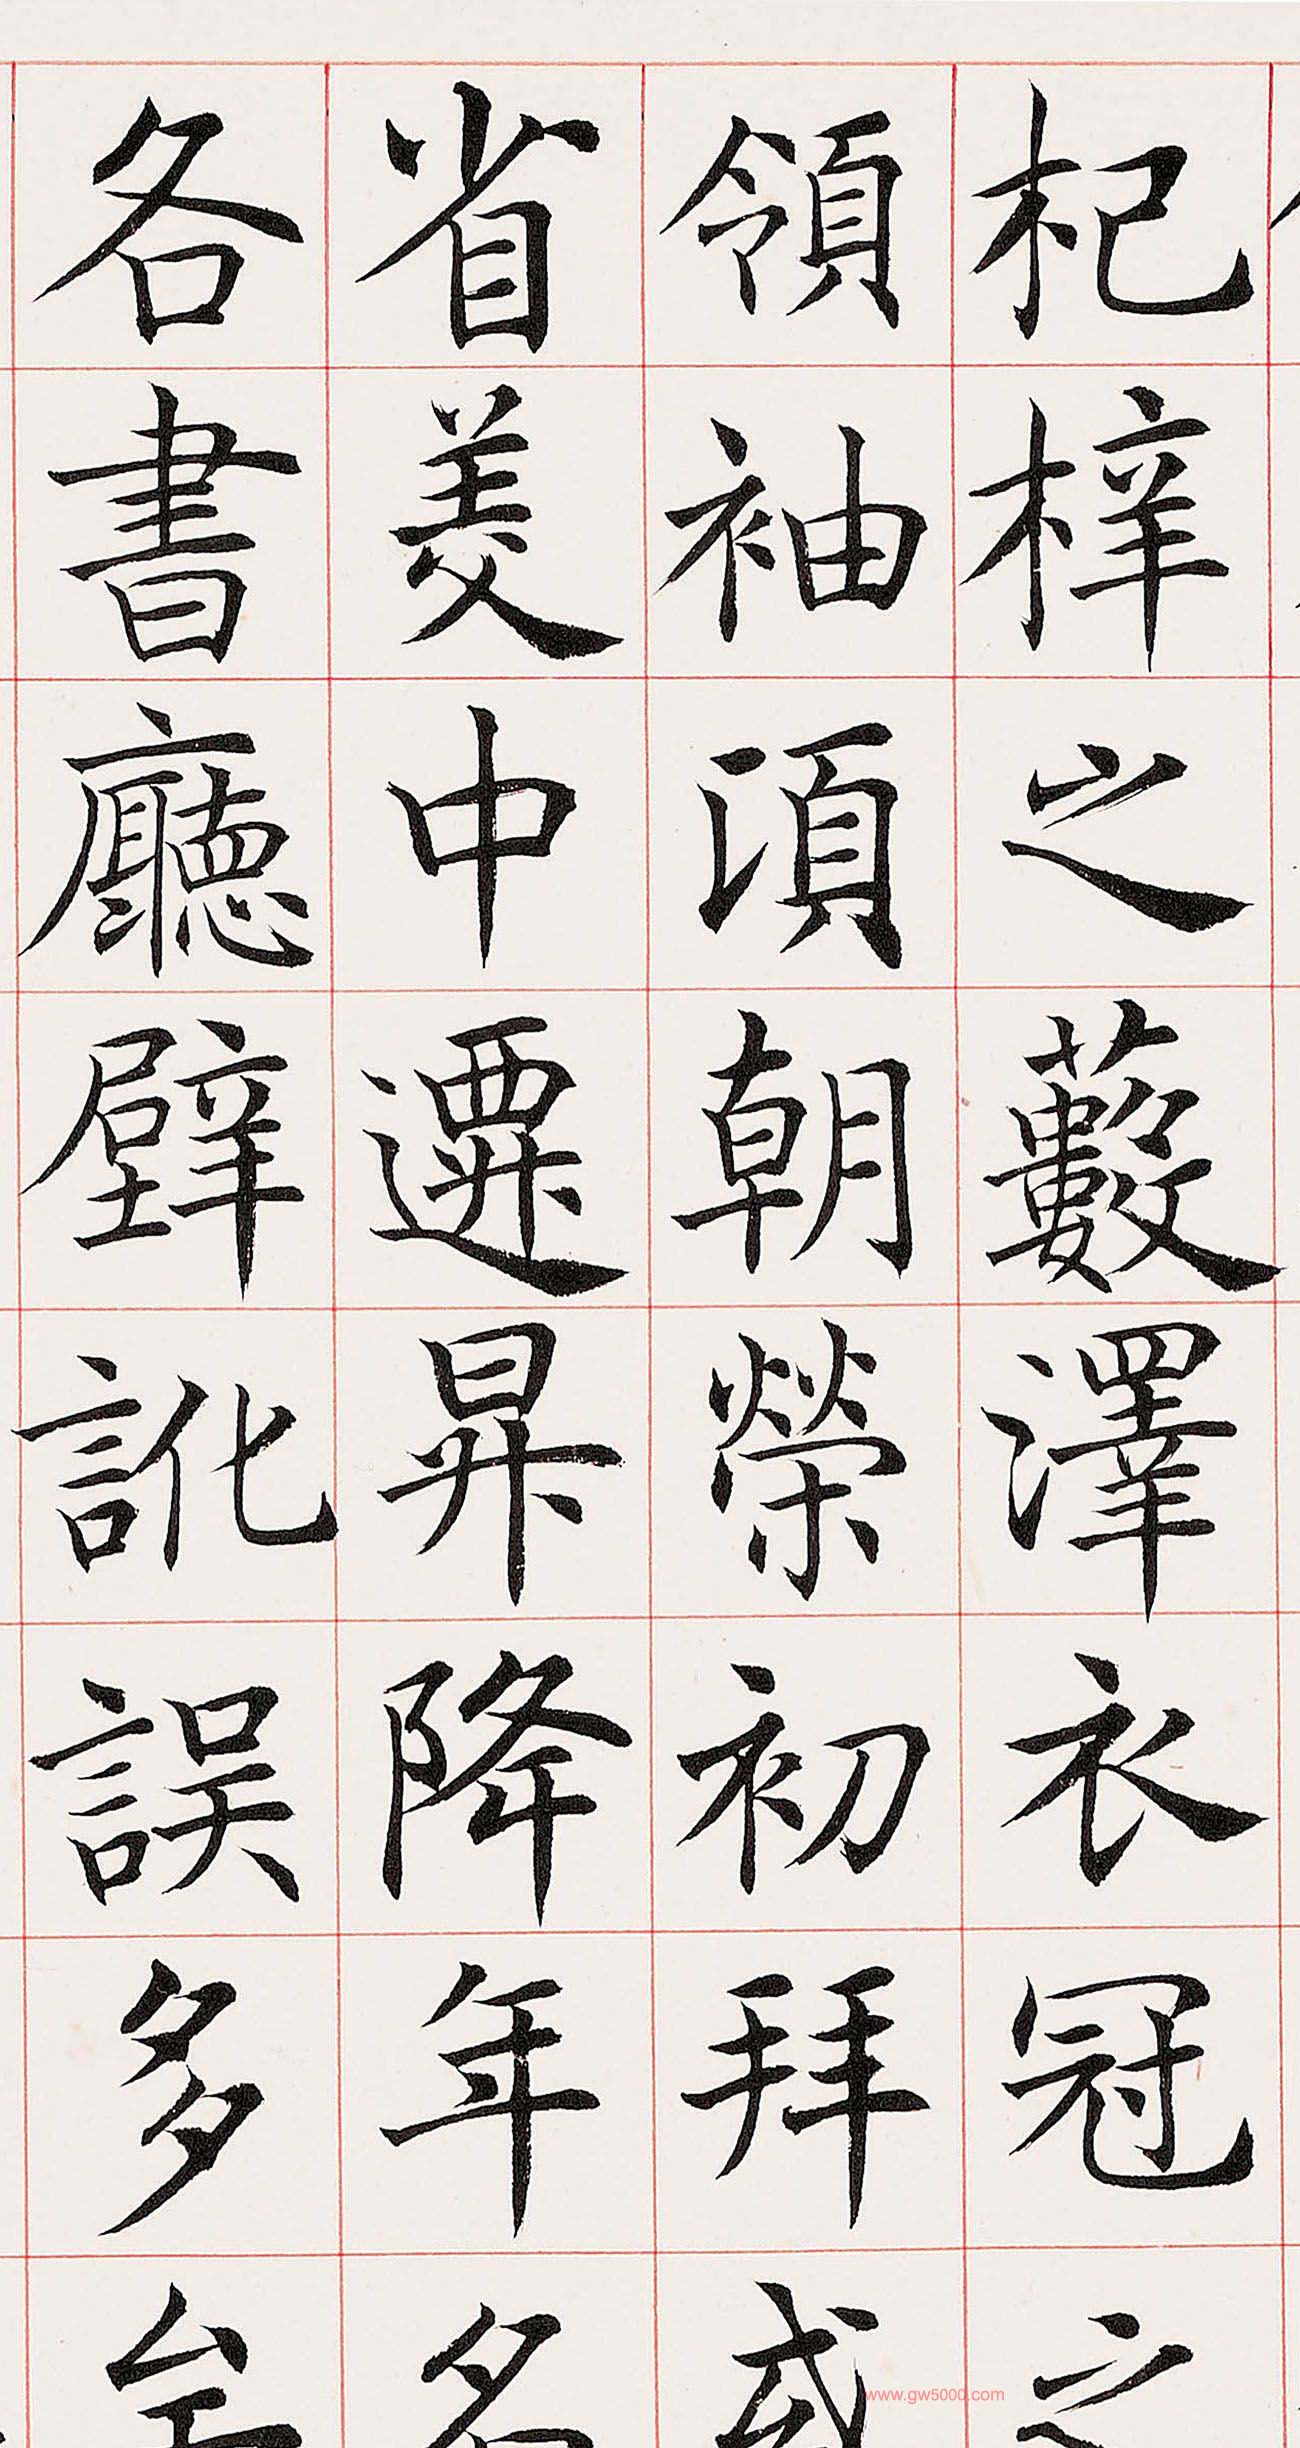 杞梓之藪澤衣冠之
領袖頃朝榮初拜或
省美中遷昇降年名
各書廳壁訛誤多
www.gw5000.com